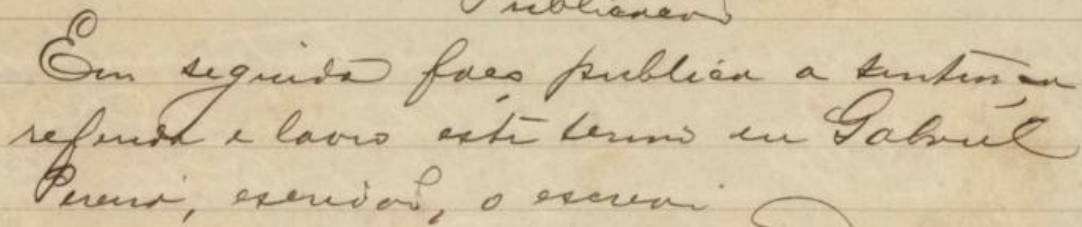 Publicação
Em seguida faço publica a sentença
referida e lavro este termo eu Gabriel
Pereira, escrivão, o escrevi